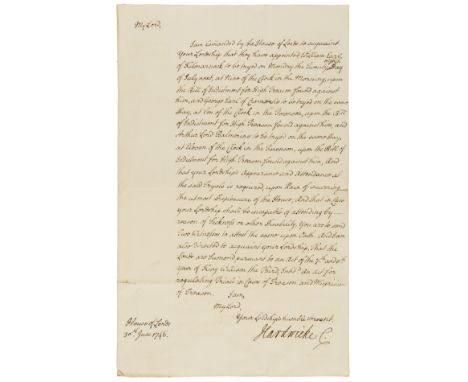 My Lord,
I am Comanded by the House of Lords to acquaint
Your Lordship that they have appointed William Earl
of Kilmarnock to be tryed on Monday the Twenty eighth Day
of July next, at Nine of the Clock in the Morning, upon
the Bill of Indictment for High Treason found against
him, and George Earl of Cromertie to be tryed on the same
Day, at Ten of the Clock in the Forenoon, upon the Bill
of Indictment for High Treason found against him, and
Arthur Lord Balmerino to be tryed on the same Day,
at Eleven of the Clock in the Forenoon, upon the Bill of
Indictment for High Treason found against him, And
that your Lordship's Appearance and Attendance at
the said Tryals is required, upon Pain of incurring
the utmost Displeasure of the House, And that in Case
your Lordship shall be incapable of attending by
reason of Sickness or other Disability, You are to send
Two Witnesses to attest the same upon Oath. And I am
also directed to acquaint your Lordship, That the
Lords are Sumon'd pursuant to an Act of the 7th
Year of King William the Third Intitled An Act for
regulating Trials in Cases of Treason and Misprision
of Treason. I am,
My Lord,
Your Lordship's humble Servant
Hardwicke C.
House of Lords
30th June 1746.